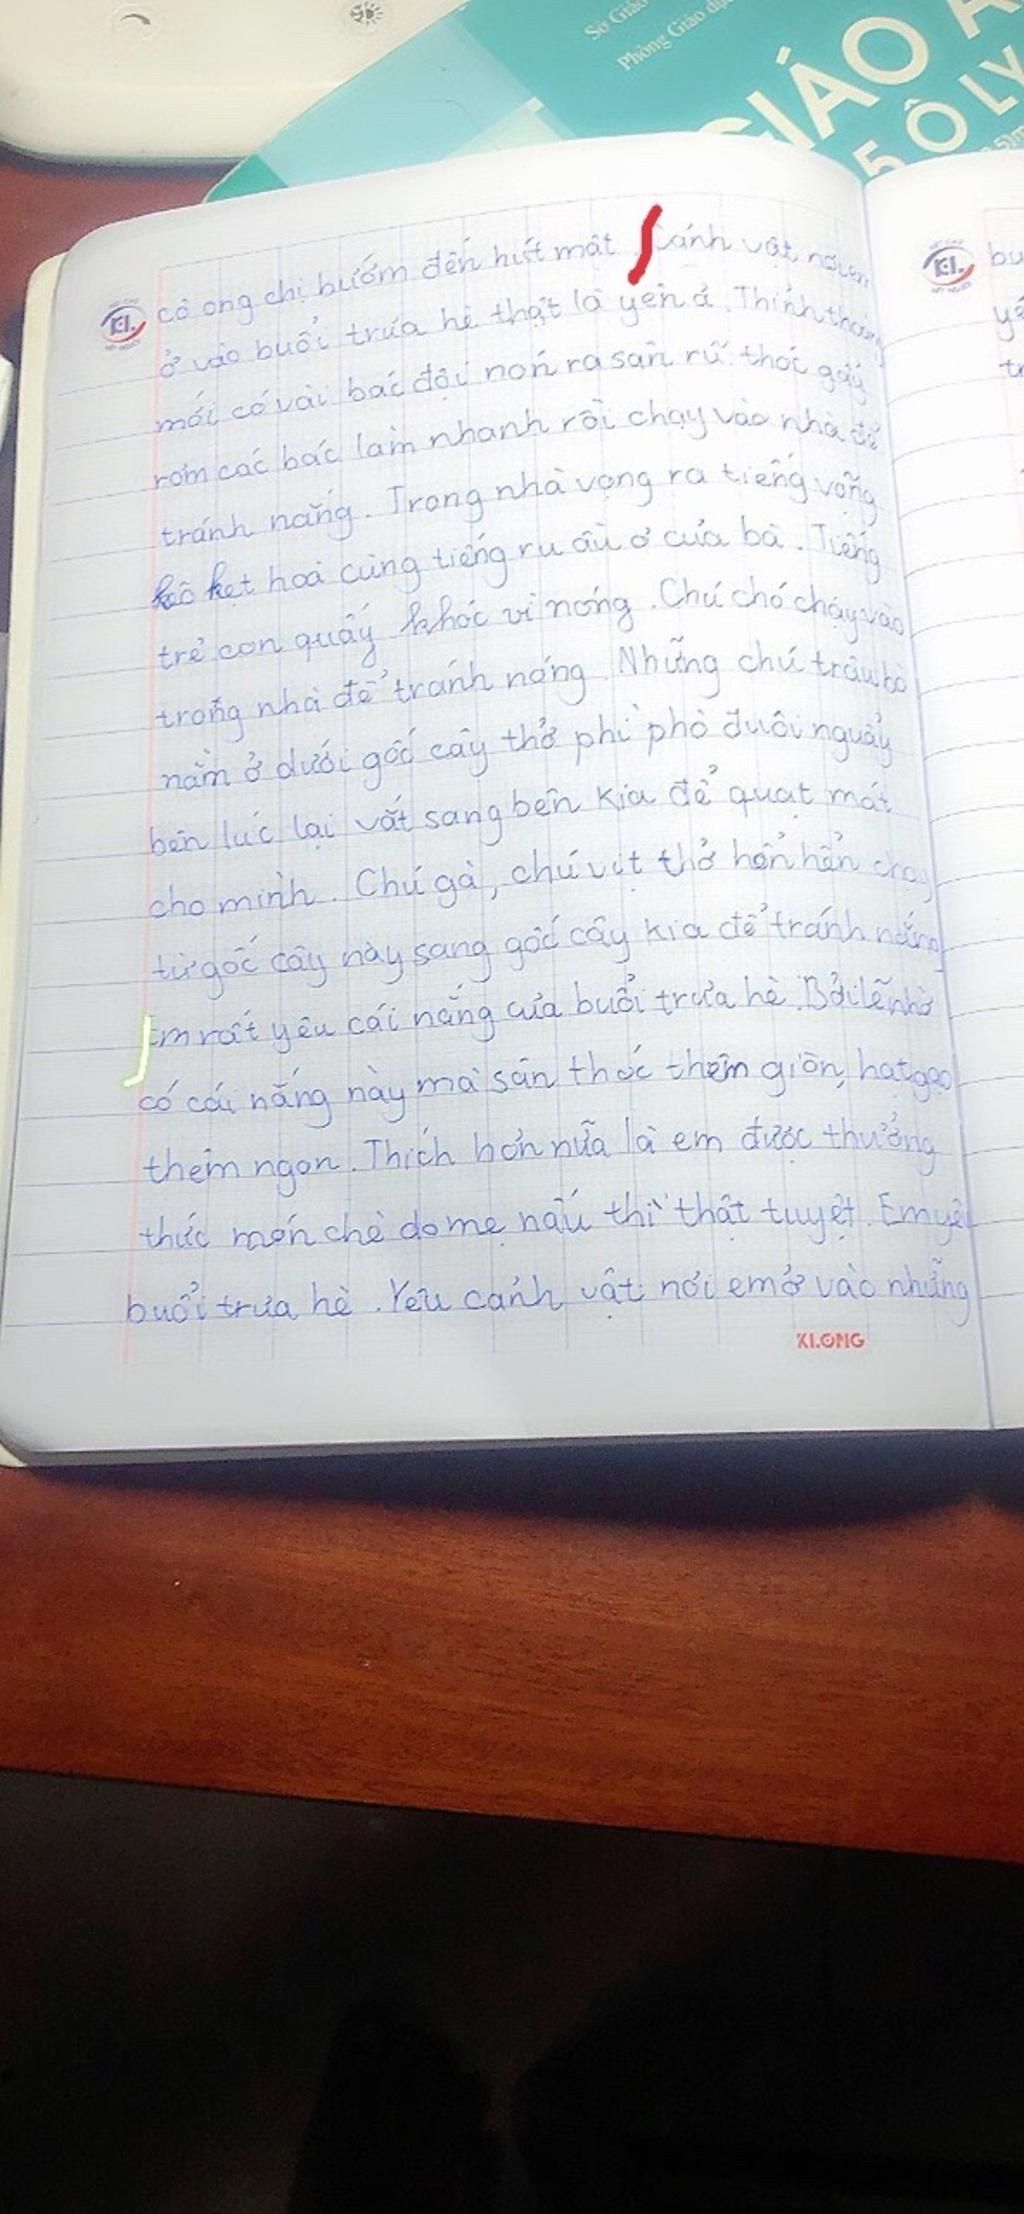 Sở Giáo
Phòng Giáo dục
GIÁO Á
5 Ô LY
KI.
cô ong chị bướm đến hút mật. Cảnh vật nơi em
ở vào buổi trưa hè thật là yên ả. Thỉnh thoảng
mới có vài bác đội nón ra sân rũ thóc gẩy
rơm các bác làm nhanh rồi chạy vào nhà để
tránh nắng. Trong nhà vọng ra tiếng võng
kẽo kẹt hoà cùng tiếng ru ầu ơ của bà. Tiếng
trẻ con quấy khóc vì nóng. Chú chó chạy vào
trong nhà để tránh nóng. Những chú trâu bò
nằm ở dưới gốc cây thở phì phò đuôi nguẩy
bên lúc lại vắt sang bên kia để quạt mát
cho mình. Chú gà, chú vịt thở hổn hển chạy
từ gốc cây này sang gốc cây kia để tránh nắng
Em rất yêu cái nắng của buổi trưa hè. Bởi lẽ nhờ
có cái nắng này mà sân thóc thêm giòn, hạt gạo
thêm ngon. Thích hơn nữa là em được thưởng
thức món chè do mẹ nấu thì thật tuyệt. Em yêu
buổi trưa hè. Yêu cảnh vật nơi em ở vào những
KLONG
KI.
bu
yê
tr